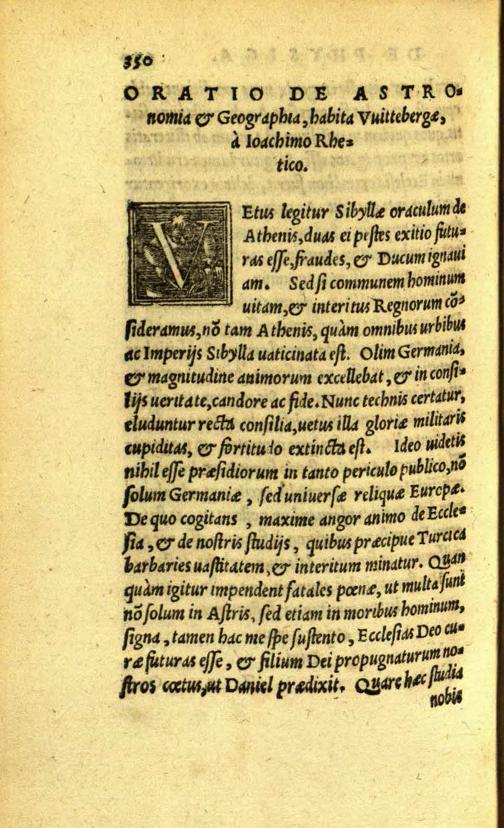 350
ORATIO DE ASTRO-
nomia & Geographia, habita Vuittebergæ,
à Ioachimo Rhe-
tico.
VEtus legitur Sibyllæ oraculum de
Athenis, duas ei pestes exitio futu-
ras esse, fraudes, & Ducum ignaui
am. Sed si communem hominum
uitam, & interitus Regnorum cō-
sideramus, nō tam Athenis, quàm omnibus urbibus
ac Imperijs Sibylla uaticinata est. Olim Germania,
& magnitudine animorum excellebat, & in consi-
lijs ueritate, candore ac fide. Nunc technis certatur,
eluduntur recta consilia, uetus illa gloriæ militaris
cupiditas, & fortitudo extincta est. Ideo uidetis
nihil esse præsidiorum in tanto periculo publico, nō
solum Germaniæ, sed uniuersæ reliquæ Europæ.
De quo cogitans, maxime angor animo de Eccle-
sia, & de nostris studijs, quibus præcipue Turcica
barbaries uastitatem, & interitum minatur. Quan
quàm igitur impendent fatales pœnæ, ut multa sunt
nō solum in Astris, sed etiam in moribus hominum,
signa, tamen hac me spe sustento, Ecclesias Deo cu-
ræ futuras esse, & filium Dei propugnaturum no-
stros cœtus, ut Daniel prædixit. Quare hæc studia
nobis